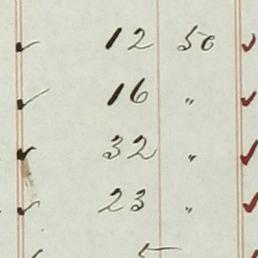 ✓ 12 50 ✓
✓ 16 " ✓
✓ 32 " ✓
✓ 23 " ✓